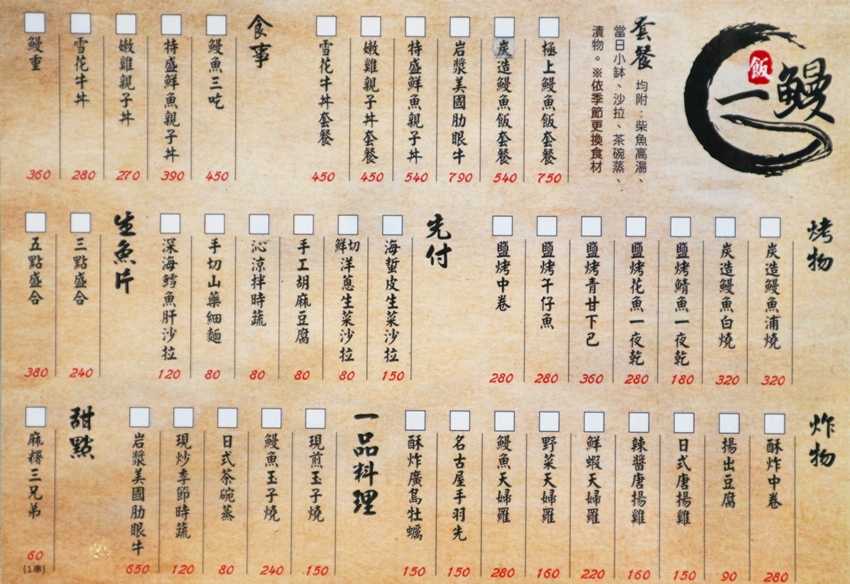 鰻
一
飯
套餐
均附：柴魚高湯、
當日小缽、沙拉、茶碗蒸、
漬物。※依季節更換食材
極上鰻魚飯套餐 750
炭造鰻魚飯套餐 540
岩漿美國肋眼牛 790
特盛鮮魚親子丼 540
嫩雞親子丼套餐 450
雪花牛丼套餐 450
食事
鰻魚三吃 450
特盛鮮魚親子丼 390
嫩雞親子丼 270
雪花牛丼 280
鰻重 360
烤物
炭造鰻魚浦燒 320
炭造鰻魚白燒 320
鹽烤鯖魚一夜乾 180
鹽烤花魚一夜乾 280
鹽烤青甘下巴 360
鹽烤午仔魚 280
鹽烤中卷 280
先付
海蜇皮生菜沙拉 150
鮮切洋蔥生菜沙拉 80
手工胡麻豆腐 80
沁涼拌時蔬 80
手切山藥細麵 80
深海鱈魚肝沙拉 120
生魚片
三點盛合 240
五點盛合 380
炸物
酥炸中卷 280
揚出豆腐 90
日式唐揚雞 150
辣醬唐揚雞 160
鮮蝦天婦羅 220
野菜天婦羅 160
鰻魚天婦羅 280
名古屋手羽先 150
酥炸廣島牡蠣 150
一品料理
現煎玉子燒 150
鰻魚玉子燒 240
日式茶碗蒸 80
現炒季節時蔬 120
岩漿美國肋眼牛 650
甜點
麻糬三兄弟 60
(1串)